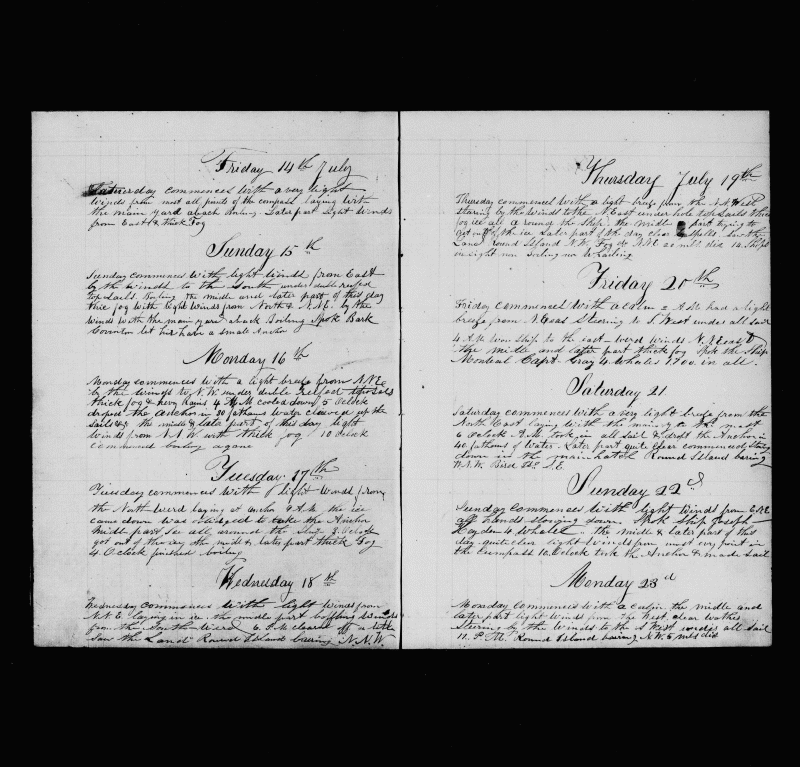 Friday 14th July
Saturday commences with a very light
winds from most all points of the compass laying with
the main yard aback boiling. Later part light winds
from East & thick Fog
Sunday 15th
Sunday commences with light wind from East
by the wind to the South under double reefed
top Sails Boiling the middle and later part of this day
thic fog with light winds from North & N.N.E. by the
winds with the main yard aback Boiling Spok Bark
let her have a small Anchor
Monday 16th
Monday commences with a light breefe from N.N.E
by the winds to N.W. under double Reefed topsails
thick fog & hevy Rains 4 P.M cooled down 5 Oclock
droped the anchor in 30 fathoms water clewed up the
sails the middle & later part of this day light
winds from N.N.W with thick fog 10 Oclock
commenced boiling agane
Tuesday 17th
Tuesday commences with light Winds from
the North werd laying at anchor 9 A.M. the ice
came down was obledged to take the Anchor
Midle part ice all around the Ship 8 Oclock
got out of the ice the midl & later part thick Fog
4. O,clock finished boiling
Wednesday 18th
Wednesday commences with light winds from
N.N.E. laying in ice the midle part baffling winds
from the South Werd 6. P.M cleared off a little
Saw the Land Round Island baring N.N.W.
Thursday July 19th
Thursday commences with a light breefe from the
stearing by the winds to the N.East under hole top Sails thick
fog ice all a round the Ship. the midle part trying to
get out of the ice Later part of the day clear Spells. Saw the
Land round Island N.W. Fog 14 Ships
in sight non boiling nor Whaling
Friday 20th
Friday commences with a calm 2 A.M had a light
breefe from N.Eeas Steering to S. West under all sail
4 A.M. Won Ship to the east-werd winds N.N.East
the midle and later part thick fog Spok the Ship
Monteal Capt Gray 4 Whales 1,700 in all.
Saturday 21
Saturday commences with a very light breefe from the
North East laying with the mainy to the mast
6 oclock A.M. took in all sail & dropt the Anchor in
40 fathoms of Water. Later part quite clear commenced Stowing
down in the main hatch Round Island baring
W.N.W. S.E.
Sunday 22d
Sunday commences with light winds from E.N.E
all hands stowing down. Spok Ship Joseph
Hayden 4 Whales the midle & later part of this
day quit clear light winds from most evry point in
the Cumpass 10. Oclock took the Anchor & made sail
Monday 23d
Monday commences with a calm. the midle and
later part light winds from the West clear wather
Steering by the winds to the S West under all sail
11. P.M. Round Island baring N.W. 5 mls dis